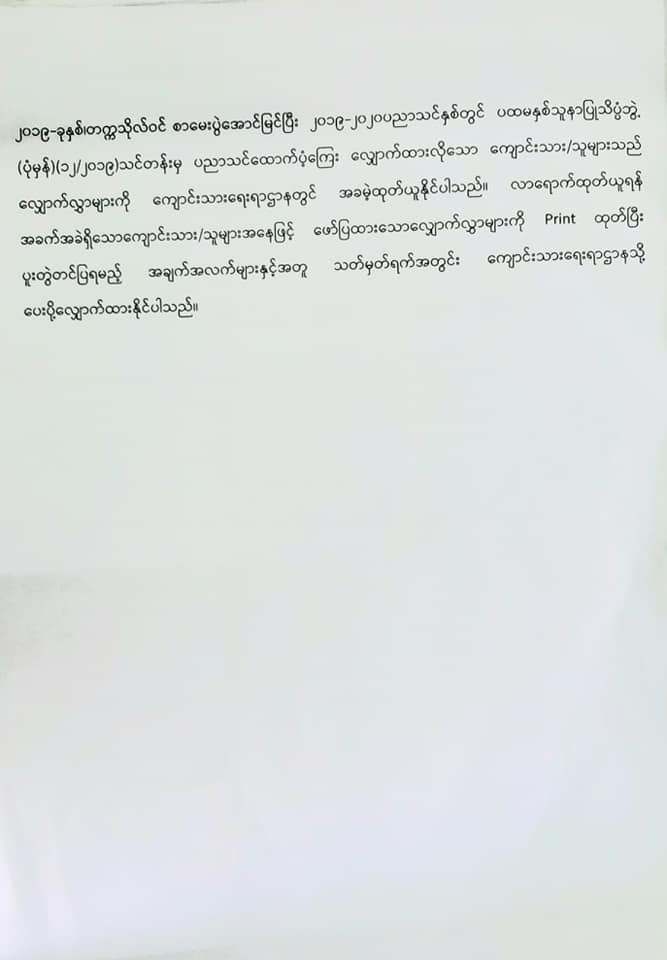 ၂၀၁၉-ခုနှစ်၊တက္ကသိုလ်ဝင် စာမေးပွဲအောင်မြင်ပြီး ၂၀၁၉-၂၀၂၀ပညာသင်နှစ်တွင် ပထမနှစ်သူနာပြုသိပ္ပံဘွဲ့
(ပုံမှန်)(၁၂/၂၀၁၉)သင်တန်းမှ ပညာသင်ထောက်ပံ့ကြေး လျှောက်ထားလိုသော ကျောင်းသား/သူများသည်
လျှောက်လွှာများကို ကျောင်းသားရေးရာဌာနတွင် အခမဲ့ထုတ်ယူနိုင်ပါသည်။ လာရောက်ထုတ်ယူရန်
အခက်အခဲရှိသောကျောင်းသား/သူများအနေဖြင့် ဖော်ပြထားသောလျှောက်လွှာများကို Print ထုတ်ပြီး
ပူးတွဲတင်ပြရမည့် အချက်အလက်များနှင့်အတူ သတ်မှတ်ရက်အတွင်း ကျောင်းသားရေးရာဌာနသို့
ပေးပို့လျှောက်ထားနိုင်ပါသည်။